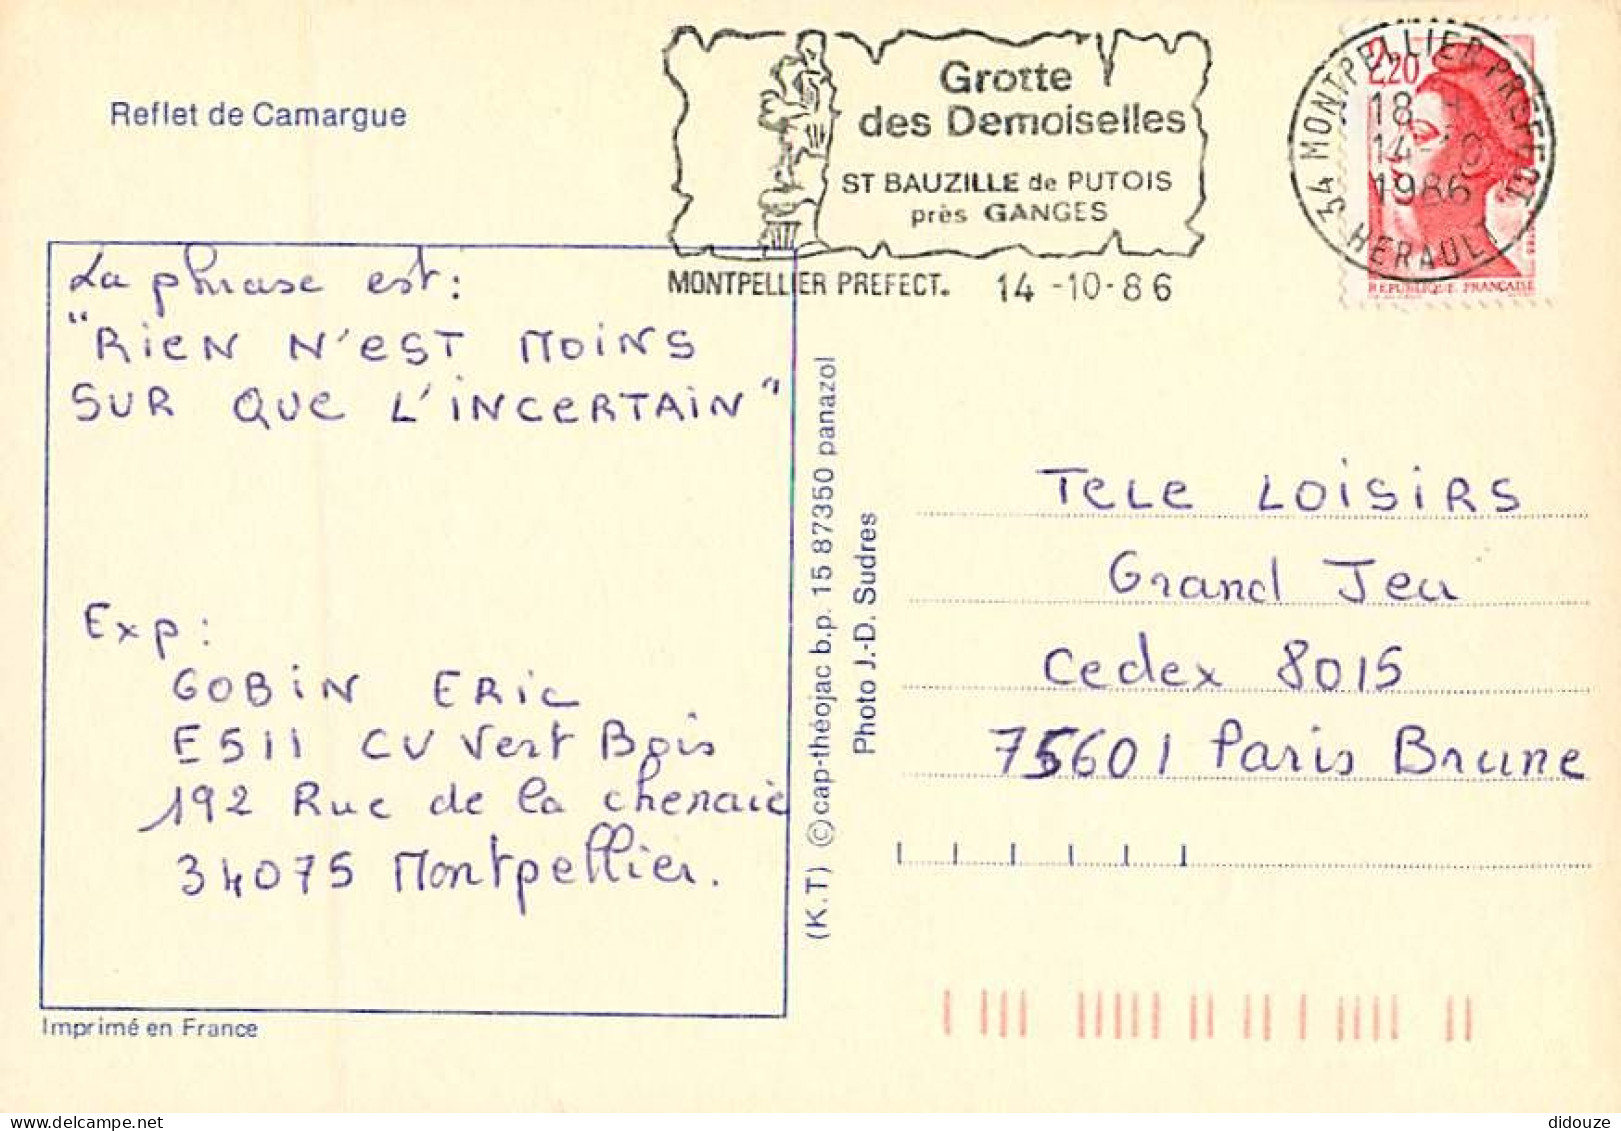 Reflet de Camargue
Grotte
des Demoiselles
ST BAUZILLE de PUTOIS
près GANGES
MONTPELLIER PREFECT. 14 -10-86
34 MONTPELLIER PREFECT
HERAULT
18 H
14-10
1986
2,20
REPUBLIQUE FRANÇAISE
La phrase est:
"RIEN N'EST MOINS
SUR QUE L'INCERTAIN"
Exp:
GOBIN ERIC
E511 CU Vert Bois
192 Rue de la chenaie
34075 Montpellier.
Imprimé en France
(K.T) © cap-théojac b.p. 15 87350 panazol
Photo J.-D. Sudres
TELE LOISIRS
Grand Jeu
Cedex 8015
75601 Paris Brune
didouze